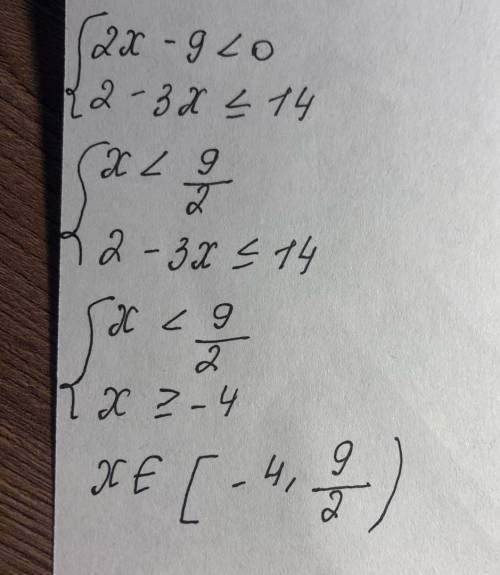 2x - 9 < 0
2 - 3x ≤ 14
x < 9/2
2 - 3x ≤ 14
x < 9/2
x ≥ -4
x ∈ [-4, 9/2)